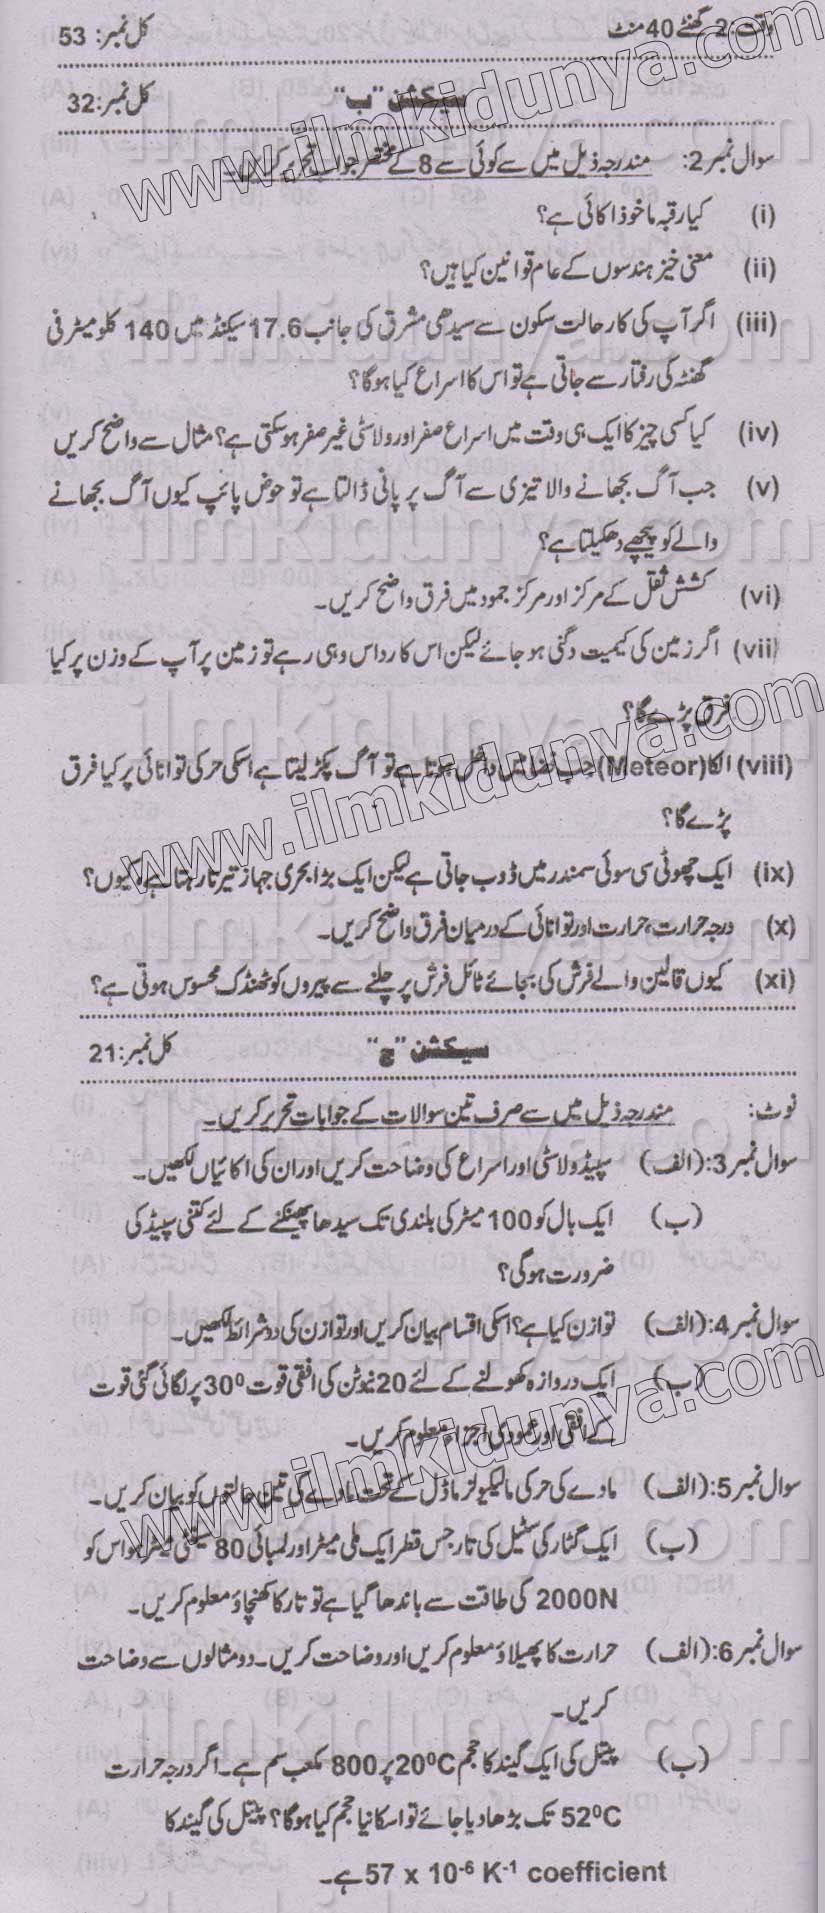 وقت: 2 گھنٹے 40 منٹ کل نمبر: 53
سیکشن "ب" کل نمبر: 32
سوال نمبر 2: مندرجہ ذیل میں سے کوئی سے 8 کے مختصر جوابات تحریر کریں۔
(i) کیا رقبہ ماخوذ اکائی ہے؟
(ii) معنی خیز ہندسوں کے عام قوانین کیا ہیں؟
(iii) اگر آپ کی کار حالت سکون سے سیدھی مشرق کی جانب 17.6 سیکنڈ میں 140 کلومیٹر فی
گھنٹہ کی رفتار سے جاتی ہے تو اس کا اسراع کیا ہوگا؟
(iv) کیا کسی چیز کا ایک ہی وقت میں اسراع صفر اور ولاسٹی غیر صفر ہو سکتی ہے؟ مثال سے واضح کریں
(v) جب آگ بجھانے والا تیزی سے آگ پر پانی ڈالتا ہے تو حوض پائپ کیوں آگ بجھانے
والے کو پیچھے دھکیلتا ہے؟
(vi) کشش ثقل کے مرکز اور مرکز جمود میں فرق واضح کریں۔
(vii) اگر زمین کی کمیت دگنی ہو جائے لیکن اس کا رداس وہی رہے تو زمین پر آپ کے وزن پر کیا
فرق پڑے گا؟
(viii) الکا (Meteor) جب فضا میں داخل ہوتا ہے تو آگ پکڑ لیتا ہے اسکی حرکی توانائی پر کیا فرق
پڑے گا؟
(ix) ایک چھوٹی سی سوئی سمندر میں ڈوب جاتی ہے لیکن ایک بڑا بحری جہاز تیرتا رہتا ہے، کیوں؟
(x) درجہ حرارت، حرارت اور توانائی کے درمیان فرق واضح کریں۔
(xi) کیوں قالین والے فرش کی بجائے ٹائل فرش پر چلنے سے پیروں کو ٹھنڈک محسوس ہوتی ہے؟
سیکشن "ج" کل نمبر: 21
نوٹ: مندرجہ ذیل میں سے صرف تین سوالات کے جوابات تحریر کریں۔
سوال نمبر 3: (الف) سپیڈ ولاسٹی اور اسراع کی وضاحت کریں اور ان کی اکائیاں لکھیں۔
(ب) ایک بال کو 100 میٹر کی بلندی تک سیدھا پھینکنے کے لئے کتنی سپیڈ کی
ضرورت ہوگی؟
سوال نمبر 4: (الف) توازن کیا ہے؟ اسکی اقسام بیان کریں اور توازن کی دو شرائط لکھیں۔
(ب) ایک دروازہ کھولنے کے لئے 20 نیوٹن کی افقی قوت 30⁰ پر لگائی گئی قوت
کے افقی اور عمودی اجزاء معلوم کریں۔
سوال نمبر 5: (الف) مادے کی حرکی مالیکیولر ماڈل کے تحت مادے کی تین حالتوں کو بیان کریں۔
(ب) ایک گٹار کی سٹیل کی تار جس قطر ایک ملی میٹر اور لمبائی 80 سینٹی میٹر ہو اس کو
2000N کی طاقت سے باندھا گیا ہے تو تار کا کھنچاؤ معلوم کریں۔
سوال نمبر 6: (الف) حرارت کا پھیلاؤ معلوم کریں اور وضاحت کریں۔ دو مثالوں سے وضاحت
کریں۔
(ب) پیتل کی ایک گیند کا حجم 20⁰C پر 800 مکعب سم ہے۔ اگر درجہ حرارت
52⁰C تک بڑھا دیا جائے تو اسکا نیا حجم کیا ہوگا؟ پیتل کی گیند کا
57 x 10⁻⁶ K⁻¹ coefficient ہے۔
www.ilmkidunya.com
www.ilmkidunya.com
www.ilmkidunya.com